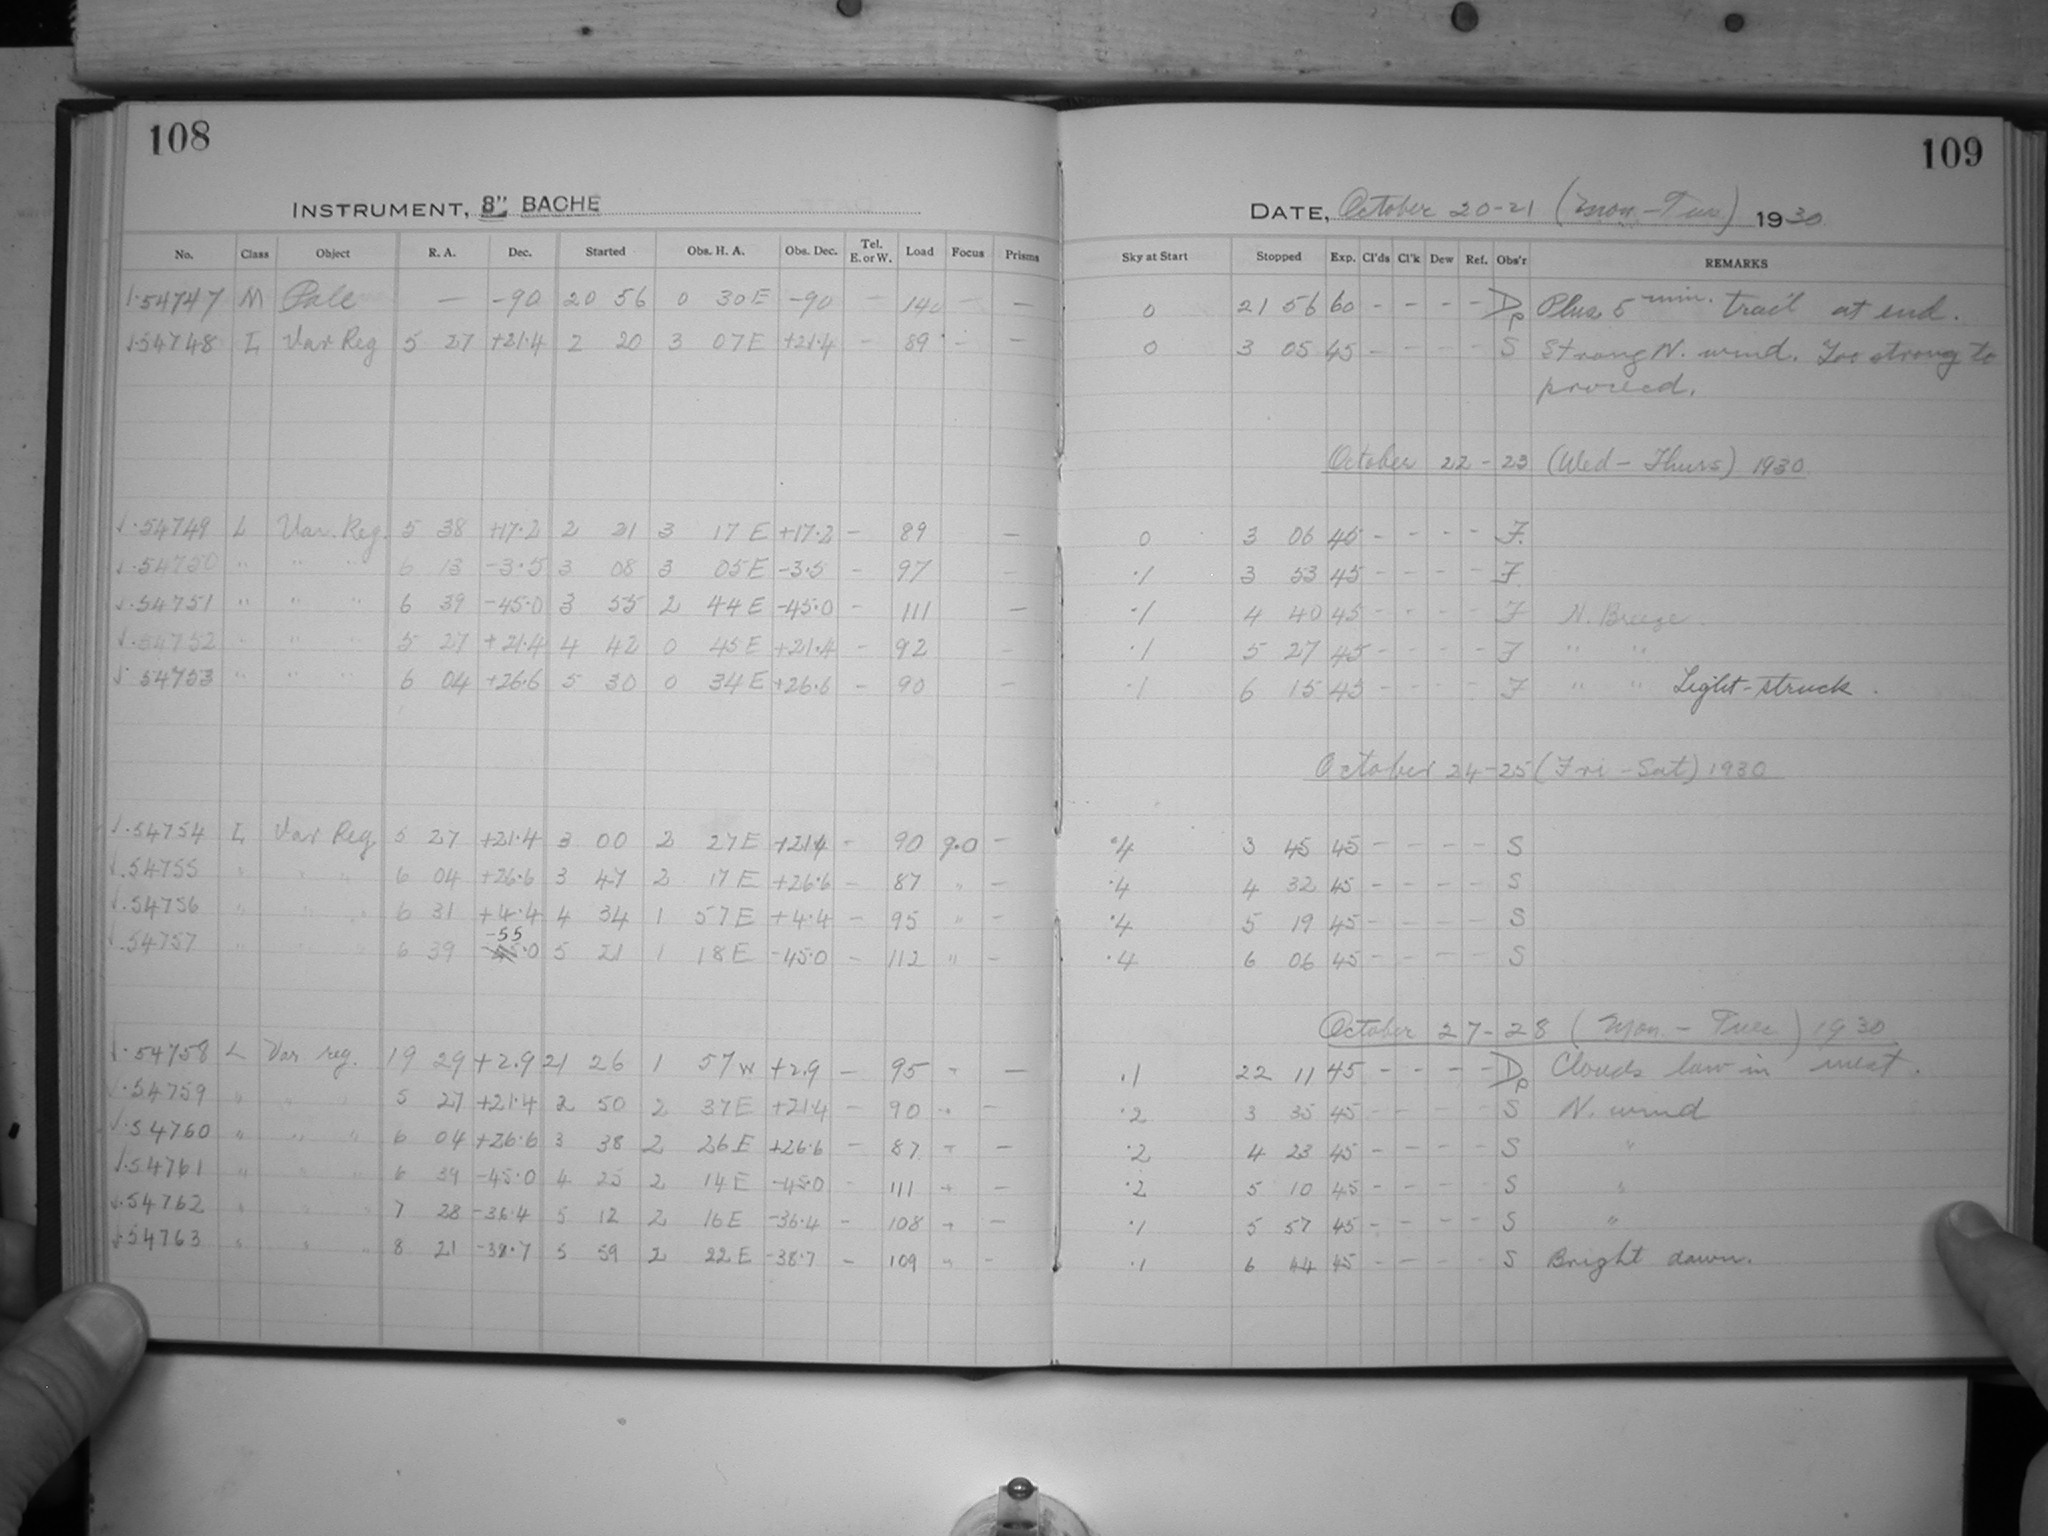 108
109
INSTRUMENT, 8" BACHE
DATE, October 20-21 (Mon-Tues) 1930
No. Class Object R. A. Dec. Started Obs. H. A. Obs. Dec. Tel. E. or W. Load Focus Prisms Sky at Start Stopped Exp. Cl'ds Cl'k Dew Ref. Obs'r REMARKS
54747 M Pole — -90 20 56 0 30E -90 — 140 — — 0 21 56 60 - - - - Dp Plus 5 min. trail at end.
54748 L Var Reg 5 27 +21.4 2 20 3 07E +21.4 — 89 - — 0 3 05 45 - - - - S Strong N. wind. Too strong to
proceed.
October 22-23 (Wed-Thurs) 1930
54749 L Var. Reg. 5 38 +17.2 2 21 3 17 E +17.2 - 89 — 0 3 06 45 - - - - F.
54750 " " " 6 13 -3.5 3 08 3 05E -3.5 - 97 — .1 3 53 45 - - - - F
54751 " " " 6 39 -45.0 3 55 2 44E -45.0 - 111 — .1 4 40 45 - - - - F N. Breeze
54752 " " " 5 27 +21.4 4 42 0 45E +21.4 - 92 — .1 5 27 45 - - - - F " "
54753 " " " 6 04 +26.6 5 30 0 34E +26.6 - 90 — .1 6 15 45 - - - - F " " Light-struck.
October 24-25 (Fri-Sat) 1930
54754 L Var Reg 5 27 +21.4 3 00 2 27E +21.4 - 90 9.0 — .4 3 45 45 - - - - S
54755 " " " 6 04 +26.6 3 47 2 17E +26.6 - 87 " — .4 4 32 45 - - - - S
54756 " " " 6 31 +4.4 4 34 1 57E +4.4 - 95 " — .4 5 19 45 - - - - S
-55
54757 " " " 6 39 45.0 5 21 1 18E -45.0 - 112 " — .4 6 06 45 - - - - S
October 27-28 (Mon.-Tues) 1930
54758 L Var reg. 19 29 +2.9 21 26 1 57W +2.9 — 95 - — .1 22 11 45 - - - - Dp Clouds low in west.
54759 " " " 5 27 +21.4 2 50 2 37E +21.4 — 90 - — .2 3 35 45 - - - - S N. wind
54760 " " " 6 04 +26.6 3 38 2 26E +26.6 — 87 - — .2 4 23 45 - - - - S "
54761 " " " 6 39 -45.0 4 25 2 14E -45.0 - 111 - — .2 5 10 45 - - - - S "
54762 " " " 7 28 -36.4 5 12 2 16E -36.4 - 108 - — .1 5 57 45 - - - - S "
54763 " " " 8 21 -38.7 5 59 2 22E -38.7 - 109 " - .1 6 44 45 - - - - S Bright dawn.